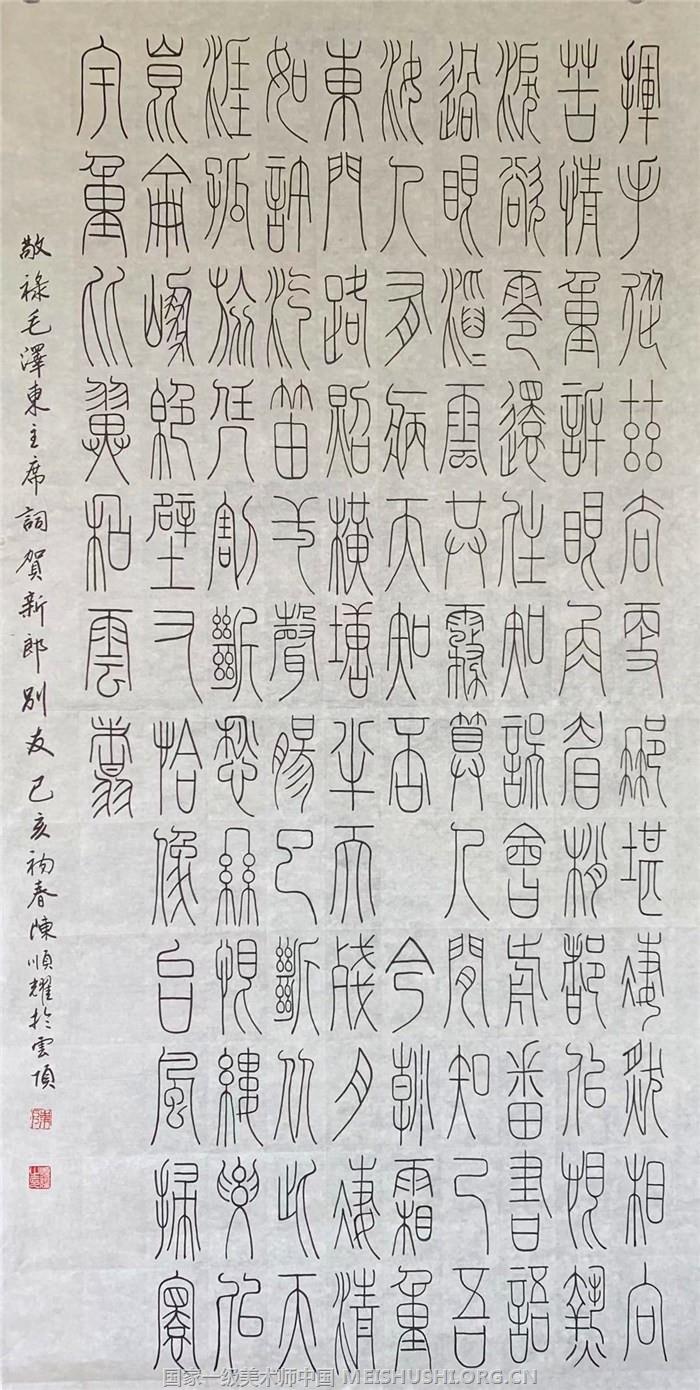 揮手從茲去更那堪淒然相向
苦情重訴眼角眉梢都似恨熱
淚欲零還住知誤會前番書語
過眼滔〻雲共霧算人間知己吾
汝人有病天知否 今朝霜重
東門路照橫塘半天殘月淒清
如許汽笛一聲腸已斷从此天
涯孤旅凭割斷愁絲恨縷要似
崑崙崩絕壁又恰像台風掃寰
宇重比翼和雲翥
敬祿毛澤東主席詞賀新郎別友 己亥初春陳順耀於雲頂
国家一级美术师中国 MEISHUSHI.ORG.CN